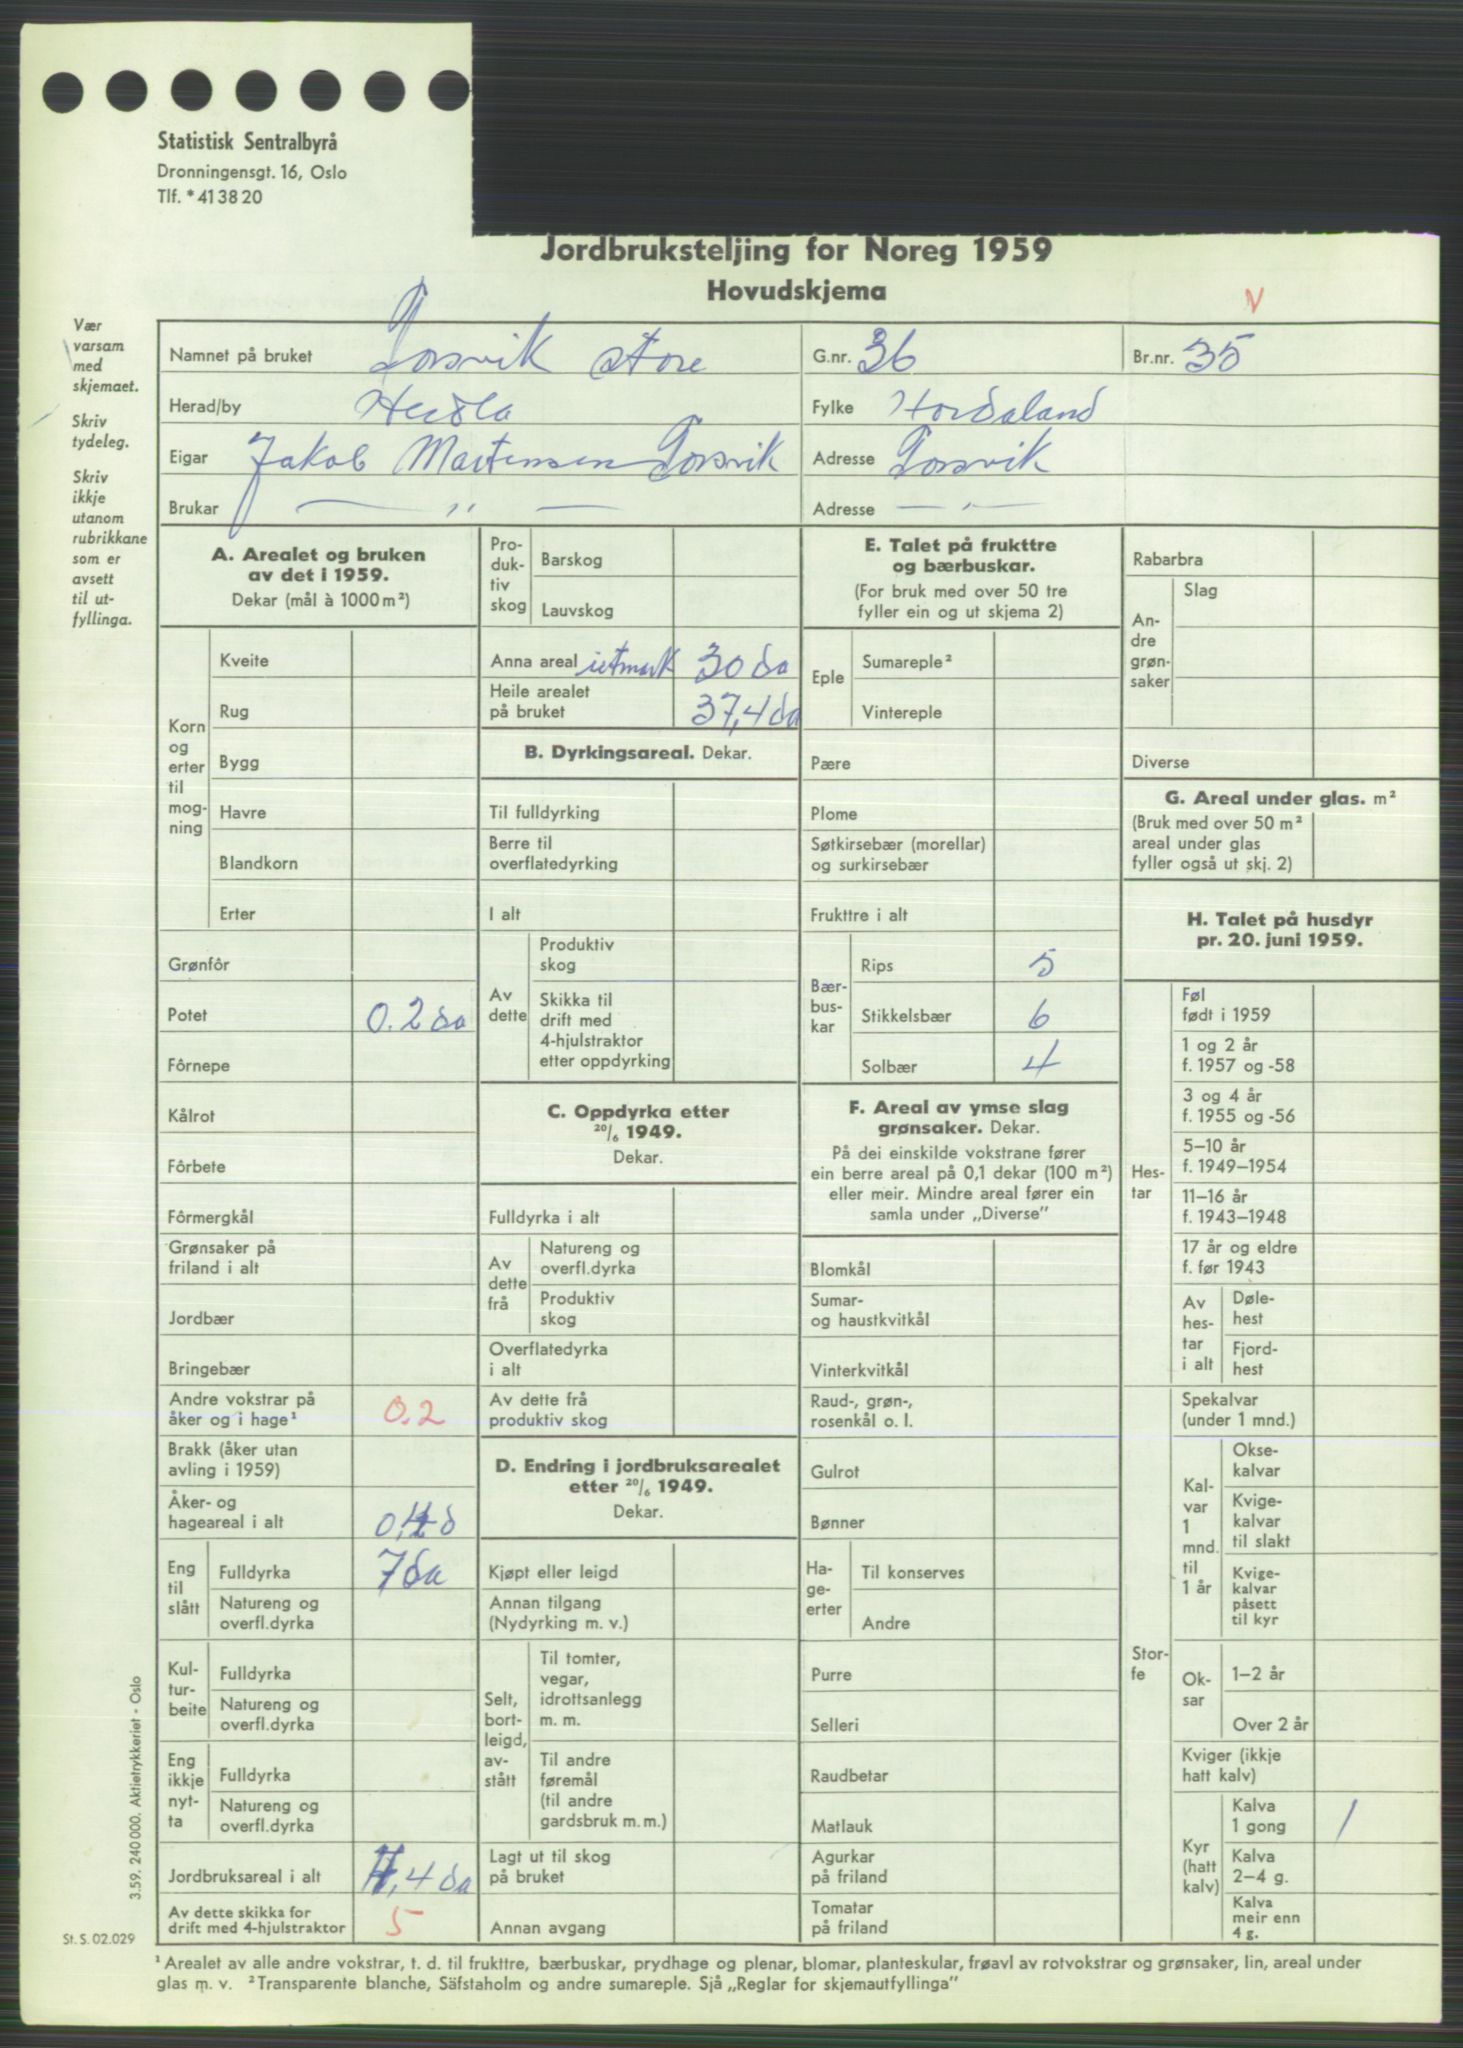 Statistisk Sentralbyrå
Dronningensgt. 16, Oslo
Tlf. * 41 38 20
Jordbruksteljing for Noreg 1959
Hovudskjema
V
Vær
varsam
med
skjemaet.
Skriv
tydeleg.
Skriv
ikkje
utanom
rubrikkane
som er
avsett
til ut-
fyllinga.
Namnet på bruket Torsvik store G.nr. 36 Br.nr. 35
Herad/by Herdla Fylke Hordaland
Eigar Jakob Martensen Torsvik Adresse Torsvik
Brukar — „ — Adresse — „ —
A. Arealet og bruken
av det i 1959.
Dekar (mål à 1000 m²)
Korn
og
erter
til
mog-
ning
Kveite
Rug
Bygg
Havre
Blandkorn
Erter
Grønfôr
Potet 0.2 da
Fôrnepe
Kålrot
Fôrbete
Fôrmergkål
Grønsaker på
friland i alt
Jordbær
Bringebær
Andre vokstrar på
åker og i hage¹ 0.2
Brakk (åker utan
avling i 1959)
Åker- og
hageareal i alt 0,4 d
Eng
til
slått
Fulldyrka 7 da
Natureng og
overfl.dyrka
Kul-
tur-
beite
Fulldyrka
Natureng og
overfl.dyrka
Eng
ikkje
nyt-
ta
Fulldyrka
Natureng og
overfl.dyrka
Jordbruksareal i alt 7,4 da
Av dette skikka for
drift med 4-hjulstraktor 5
Pro-
duk-
tiv
skog
Barskog
Lauvskog
Anna areal utmark 30 da
Heile arealet
på bruket 37,4 da
B. Dyrkingsareal. Dekar.
Til fulldyrking
Berre til
overflatedyrking
I alt
Av
dette
Produktiv
skog
Skikka til
drift med
4-hjulstraktor
etter oppdyrking
C. Oppdyrka etter
20/6 1949.
Dekar.
Fulldyrka i alt
Av
dette
frå
Natureng og
overfl.dyrka
Produktiv
skog
Overflatedyrka
i alt
Av dette frå
produktiv skog
D. Endring i jordbruksarealet
etter 20/6 1949.
Dekar.
Kjøpt eller leigd
Annan tilgang
(Nydyrking m. v.)
Selt,
bort-
leigd,
av-
stått
Til tomter,
vegar,
idrottsanlegg
m. m.
Til andre
føremål
(til andre
gardsbruk m. m.)
Lagt ut til skog
på bruket
Annan avgang
E. Talet på frukttre
og bærbuskar.
(For bruk med over 50 tre
fyller ein og ut skjema 2)
Eple
Sumareple²
Vintereple
Pære
Plome
Søtkirsebær (morellar)
og surkirsebær
Frukttre i alt
Bær-
bus-
kar
Rips 5
Stikkelsbær 6
Solbær 4
F. Areal av ymse slag
grønsaker. Dekar.
På dei einskilde vokstrane fører
ein berre areal på 0,1 dekar (100 m²)
eller meir. Mindre areal fører ein
samla under „Diverse”
Blomkål
Sumar-
og haustkvitkål
Vinterkvitkål
Raud-, grøn-,
rosenkål o. l.
Gulrot
Bønner
Ha-
ge-
erter
Til konserves
Andre
Purre
Selleri
Raudbetar
Matlauk
Agurkar
på friland
Tomatar
på friland
Rabarbra
An-
dre
grøn-
saker
Slag
Diverse
G. Areal under glas. m²
(Bruk med over 50 m²
areal under glas
fyller også ut skj. 2)
H. Talet på husdyr
pr. 20. juni 1959.
Hes-
tar
Føl
født i 1959
1 og 2 år
f. 1957 og -58
3 og 4 år
f. 1955 og -56
5–10 år
f. 1949–1954
11–16 år
f. 1943–1948
17 år og eldre
f. før 1943
Av
hes-
tar
i alt
Døle-
hest
Fjord-
hest
Stor-
fe
Spekalvar
(under 1 mnd.)
Kal-
var
1
mnd.
til
1 år
Okse-
kalvar
Kvige-
kalvar
til slakt
Kvige-
kalvar
påsett
til kyr
Ok-
sar
1–2 år
Over 2 år
Kviger (ikkje
hatt kalv)
Kyr
(hatt
kalv)
Kalva
1 gong 1
Kalva
2–4 g.
Kalva
meir enn
4 g.
3.59. 240 000. Aktietrykkeriet - Oslo
St. S. 02.029
¹ Arealet av alle andre vokstrar, t. d. til frukttre, bærbuskar, prydhage og plenar, blomar, planteskular, frøavl av rotvokstrar og grønsaker, lin, areal under
glas m. v. ² Transparente blanche, Säfstaholm og andre sumareple. Sjå „Reglar for skjemautfyllinga”